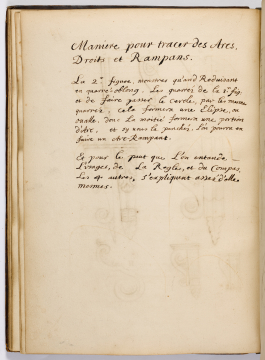 Maniere pour tracer des Arcs,
Droits et Rampans.
La 2e figure, monstres qu'and Reduisant
en quarré oblong. Les quarréz de la 1e fig.
et de faire passer le cercle, par les mesmes
quarréz, cela formera une Elipse, ou
ouale, dont La moitié formera une portion
d'Arc, et sy vous la panchéz, l'on pourra en
faire un Arc Rampant.
Et pour le peut que L'on entande
L'usages, de La Regles, et du Compas,
Les 4 autres, s'expliquent asses d'elle
mesmes.